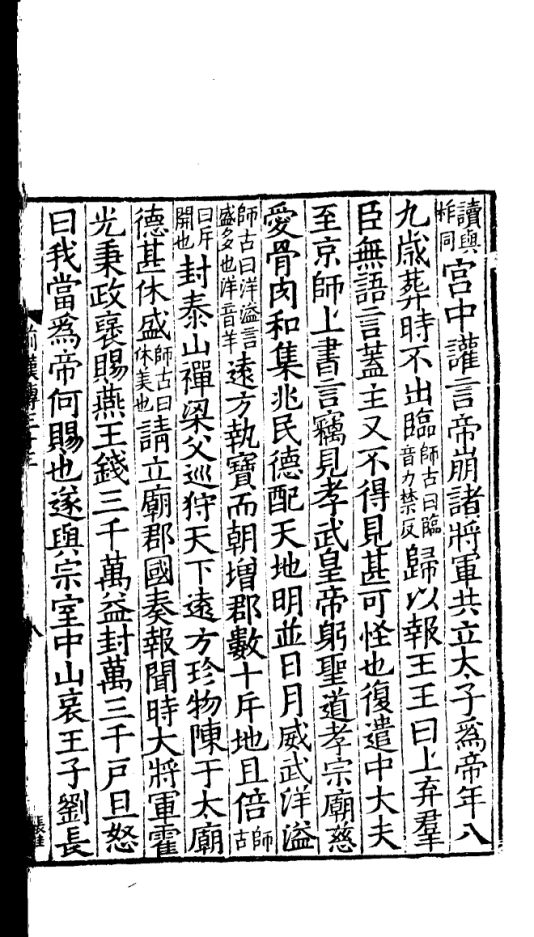 讀與柞同宮中讙言帝崩諸將軍共立太子爲帝年八
九歲葬時不出臨師古曰臨音力禁反歸以報王王曰上弃羣
臣無語言蓋主又不得見甚可怪也復遣中大夫
至京師上書言竊見孝武皇帝躬聖道孝宗廟慈
愛骨肉和集兆民德配天地明並日月威武洋溢
師古曰洋溢言盛多也洋音羊遠方執寶而朝增郡數十斥地且倍師古
曰斥開也封泰山禪梁父巡狩天下遠方珍物陳于太廟
德甚休盛師古曰休美也請立廟郡國奏報聞時大將軍霍
光秉政襃賜燕王錢三千萬益封萬三千戶旦怒
曰我當爲帝何賜也遂與宗室中山哀王子劉長
前漢傳三十三 八